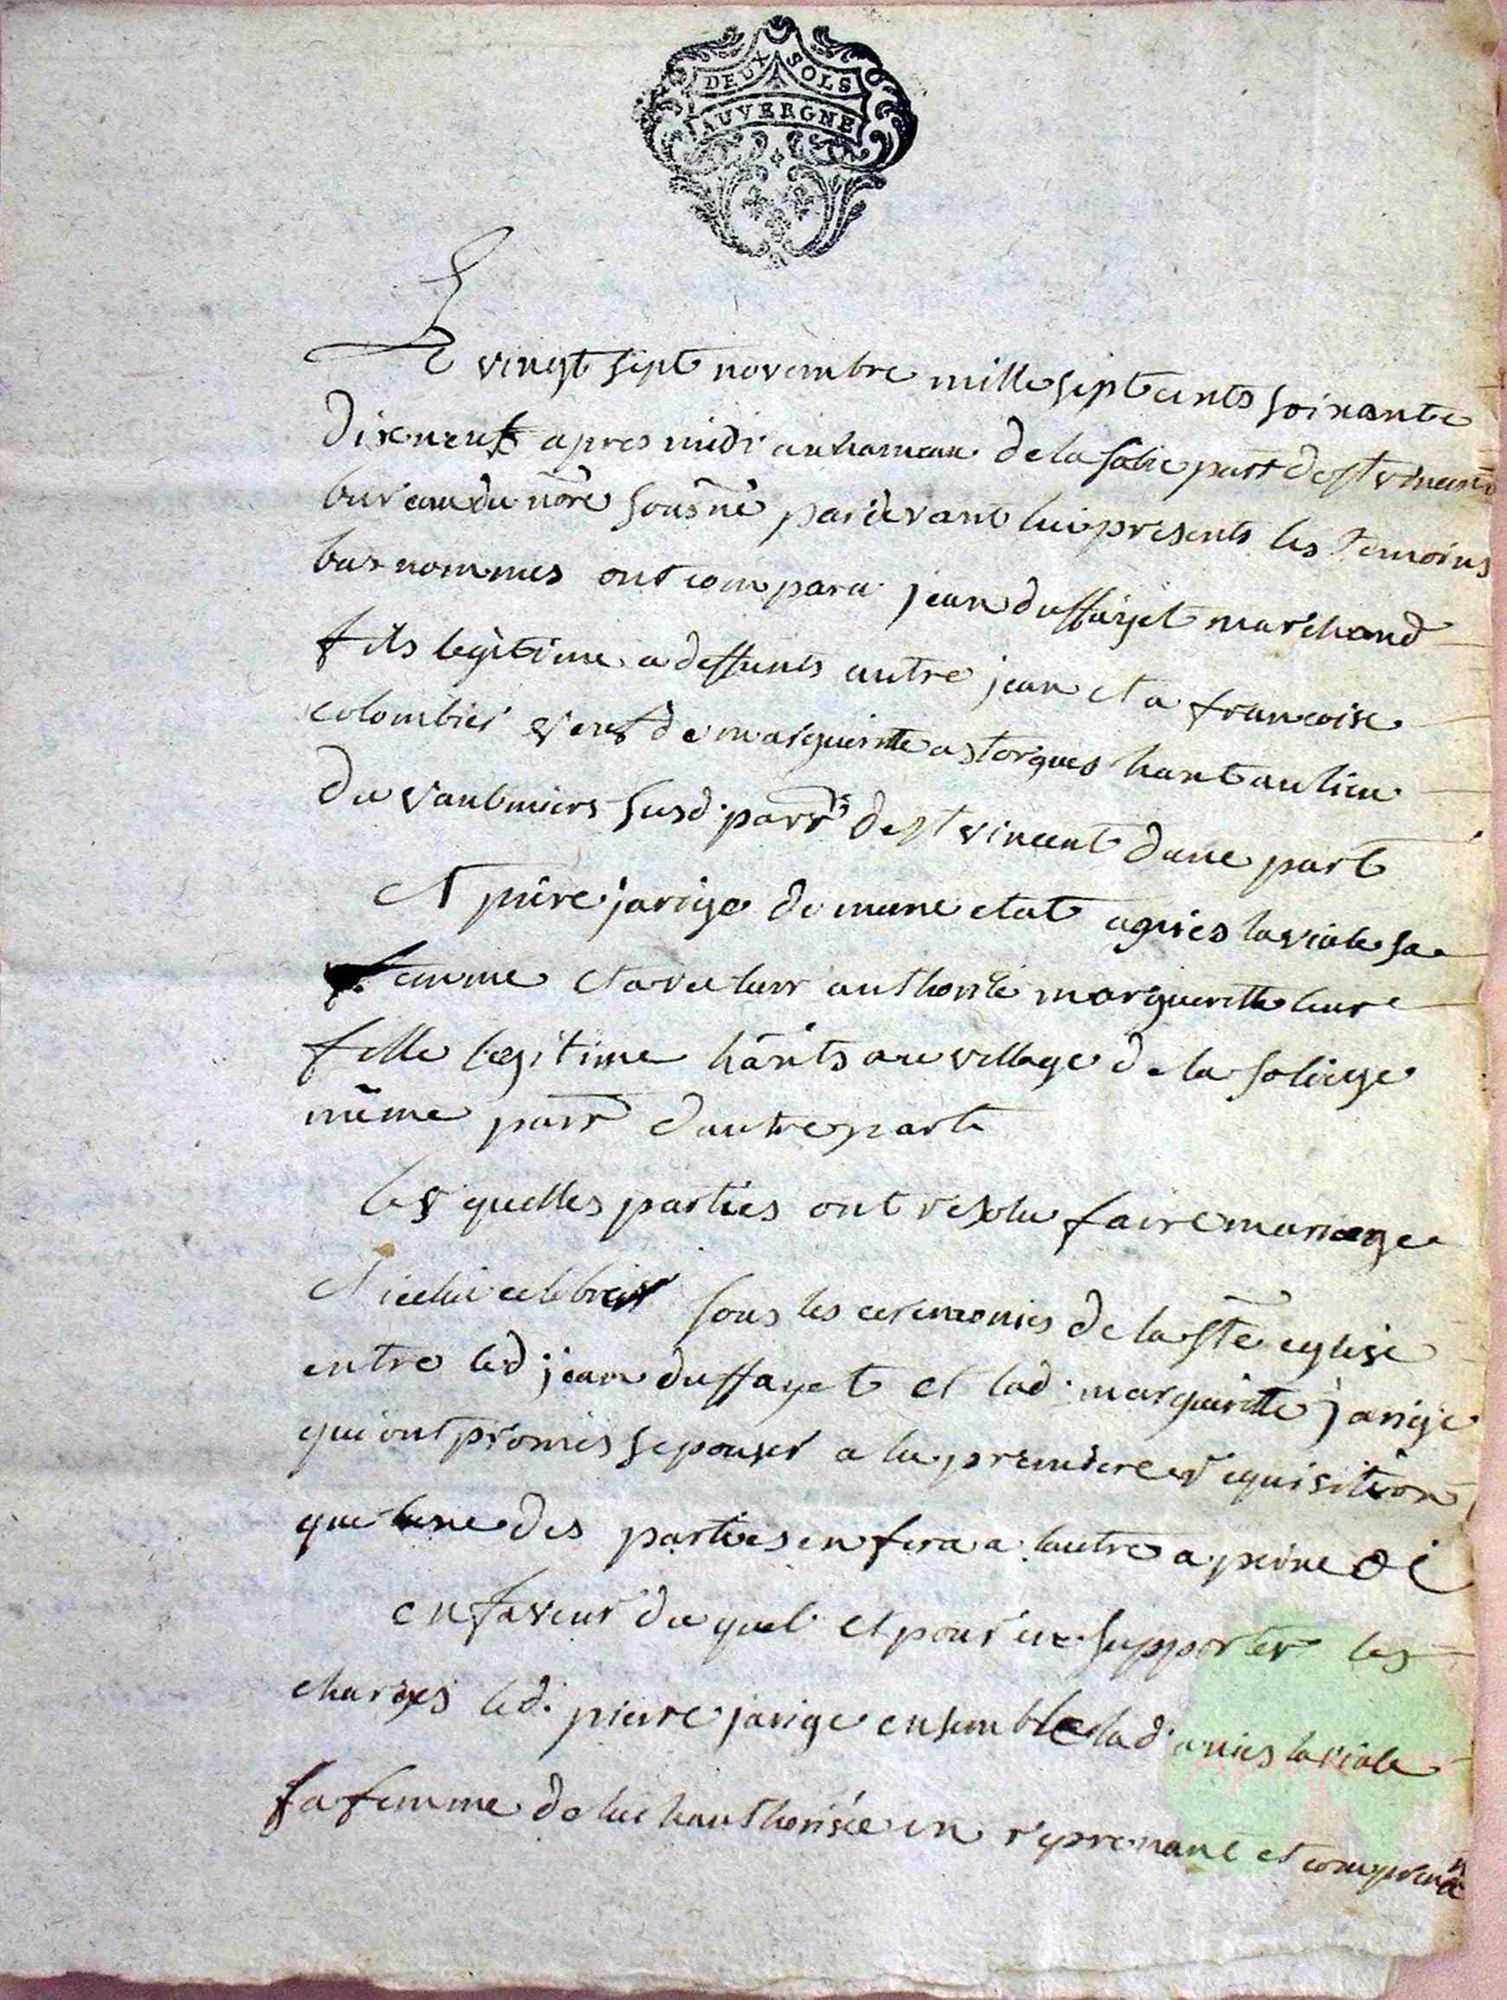 DEUX SOLS
AUVERGNE
Le vingt sept novembre mille sept cents soixante
dix neuf apres midi au hameau de la parr de st vincent
bureau du nore sousne pardevant lui presents les temoins
bas nommes ont comparu jean duffayet marchand
fils legitime a deffunts autre jean et a francoise
colombier veuf de margueritte astorgues hant au lieu
du vaulmiers susd. parr de st vincent dune part
Et pierre jarige de meme etat agnes laviale sa
femme et avec leur authorité margueritte leur
fille legitime hants au village de la soliege
même parr dautre part
les quelles parties ont resolu faire mariage
et icelui celebrer sous les ceremonies de la ste eglise
entre led jean duffayet et lad. margueritte jarige
qui ont promis sepouser a la premiere requisition
que lune des parties en fera a lautre a peine &c
en faveur du quel et pour en supporter les
charges led. pierre jarige ensemble lad. anies laviale
sa femme de lui hauthorisée en reprenant et comprenant